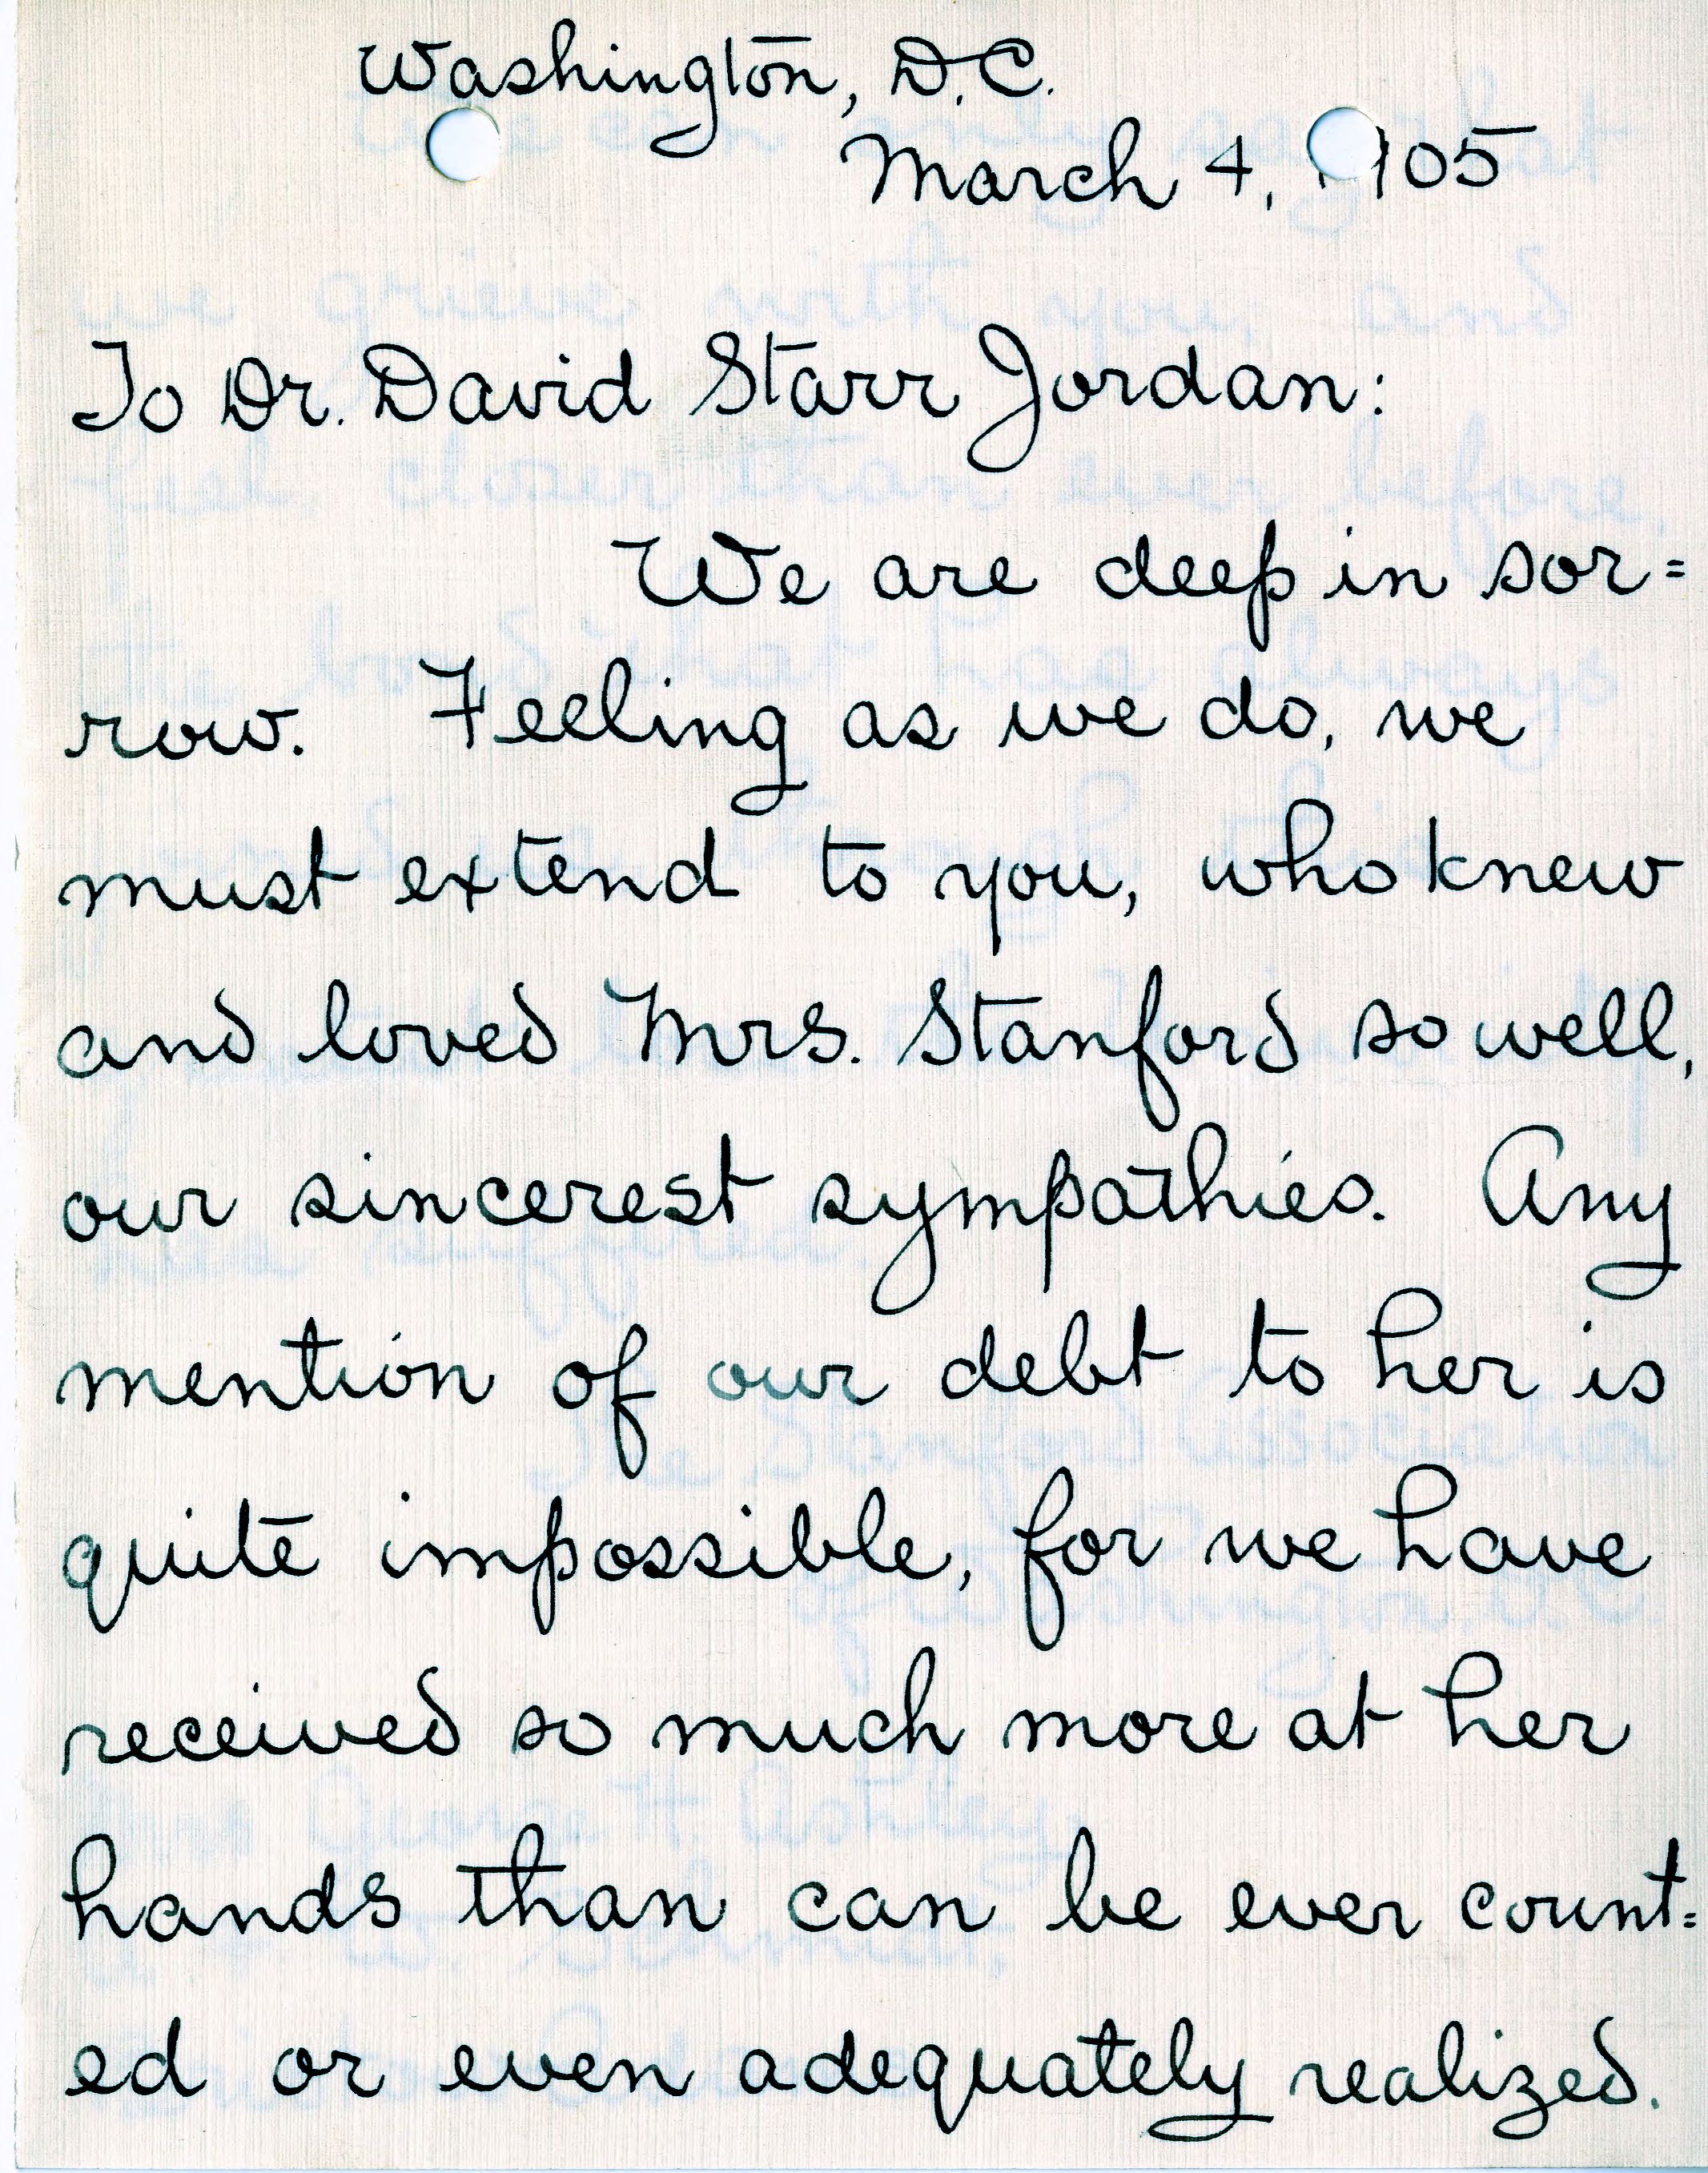 Washington, D.C.
March 4, 1905
To Dr. David Starr Jordan:
We are deep in sor=
row. Feeling as we do, we
must extend to you, who knew
and loved Mrs. Stanford so well,
our sincerest sympathies. Any
mention of our debt to her is
quite impossible, for we have
received so much more at her
hands than can be ever count=
ed or even adequately realized.